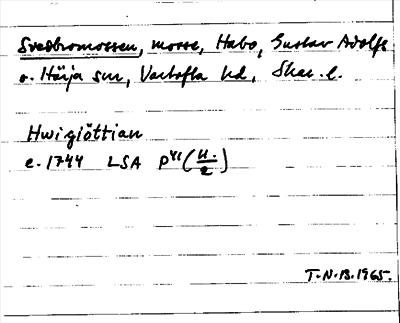 Svedbromossen, mosse, Habo, Gustav Adolfs
o. Härja snr, Vartofta hd, Skar. l.
Hwigiöttian
e. 1744 LSA P41 (U./2)
T.N.B. 1965.